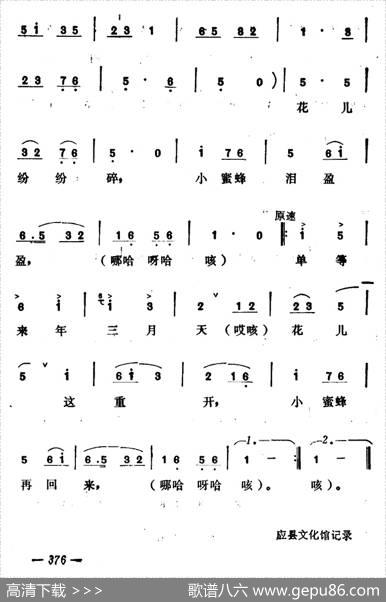 5i 35 | 23 1 | 65 82 | 1· 3 |
23 76 | 5· 6 | 5 0 ) | 5 5 |
花儿
32 76 | 5· 0 | i 76 | 5 6i |
纷纷 碎， 小蜜蜂 泪盈
6.5 32 | 16 56 | 1· 0 原速 ‖: i 5 |
盈，（哪哈 呀哈 咳） 单等
6 i | i 3 | 2 12 | 23 5 |
来年 三月 天（哎咳）花儿
5 i | 6i 3 | 2 16 | i 76 |
这重 开， 小蜜蜂
5 6i | 6.5 32 | 16 56 | 1. 1 — :‖ 2. 1 — ‖
再回 来，（哪哈 呀哈 咳）。 咳）。
应县文化馆记录
— 376 —
高清下载 > > >
歌谱八六 www.gepu86.com